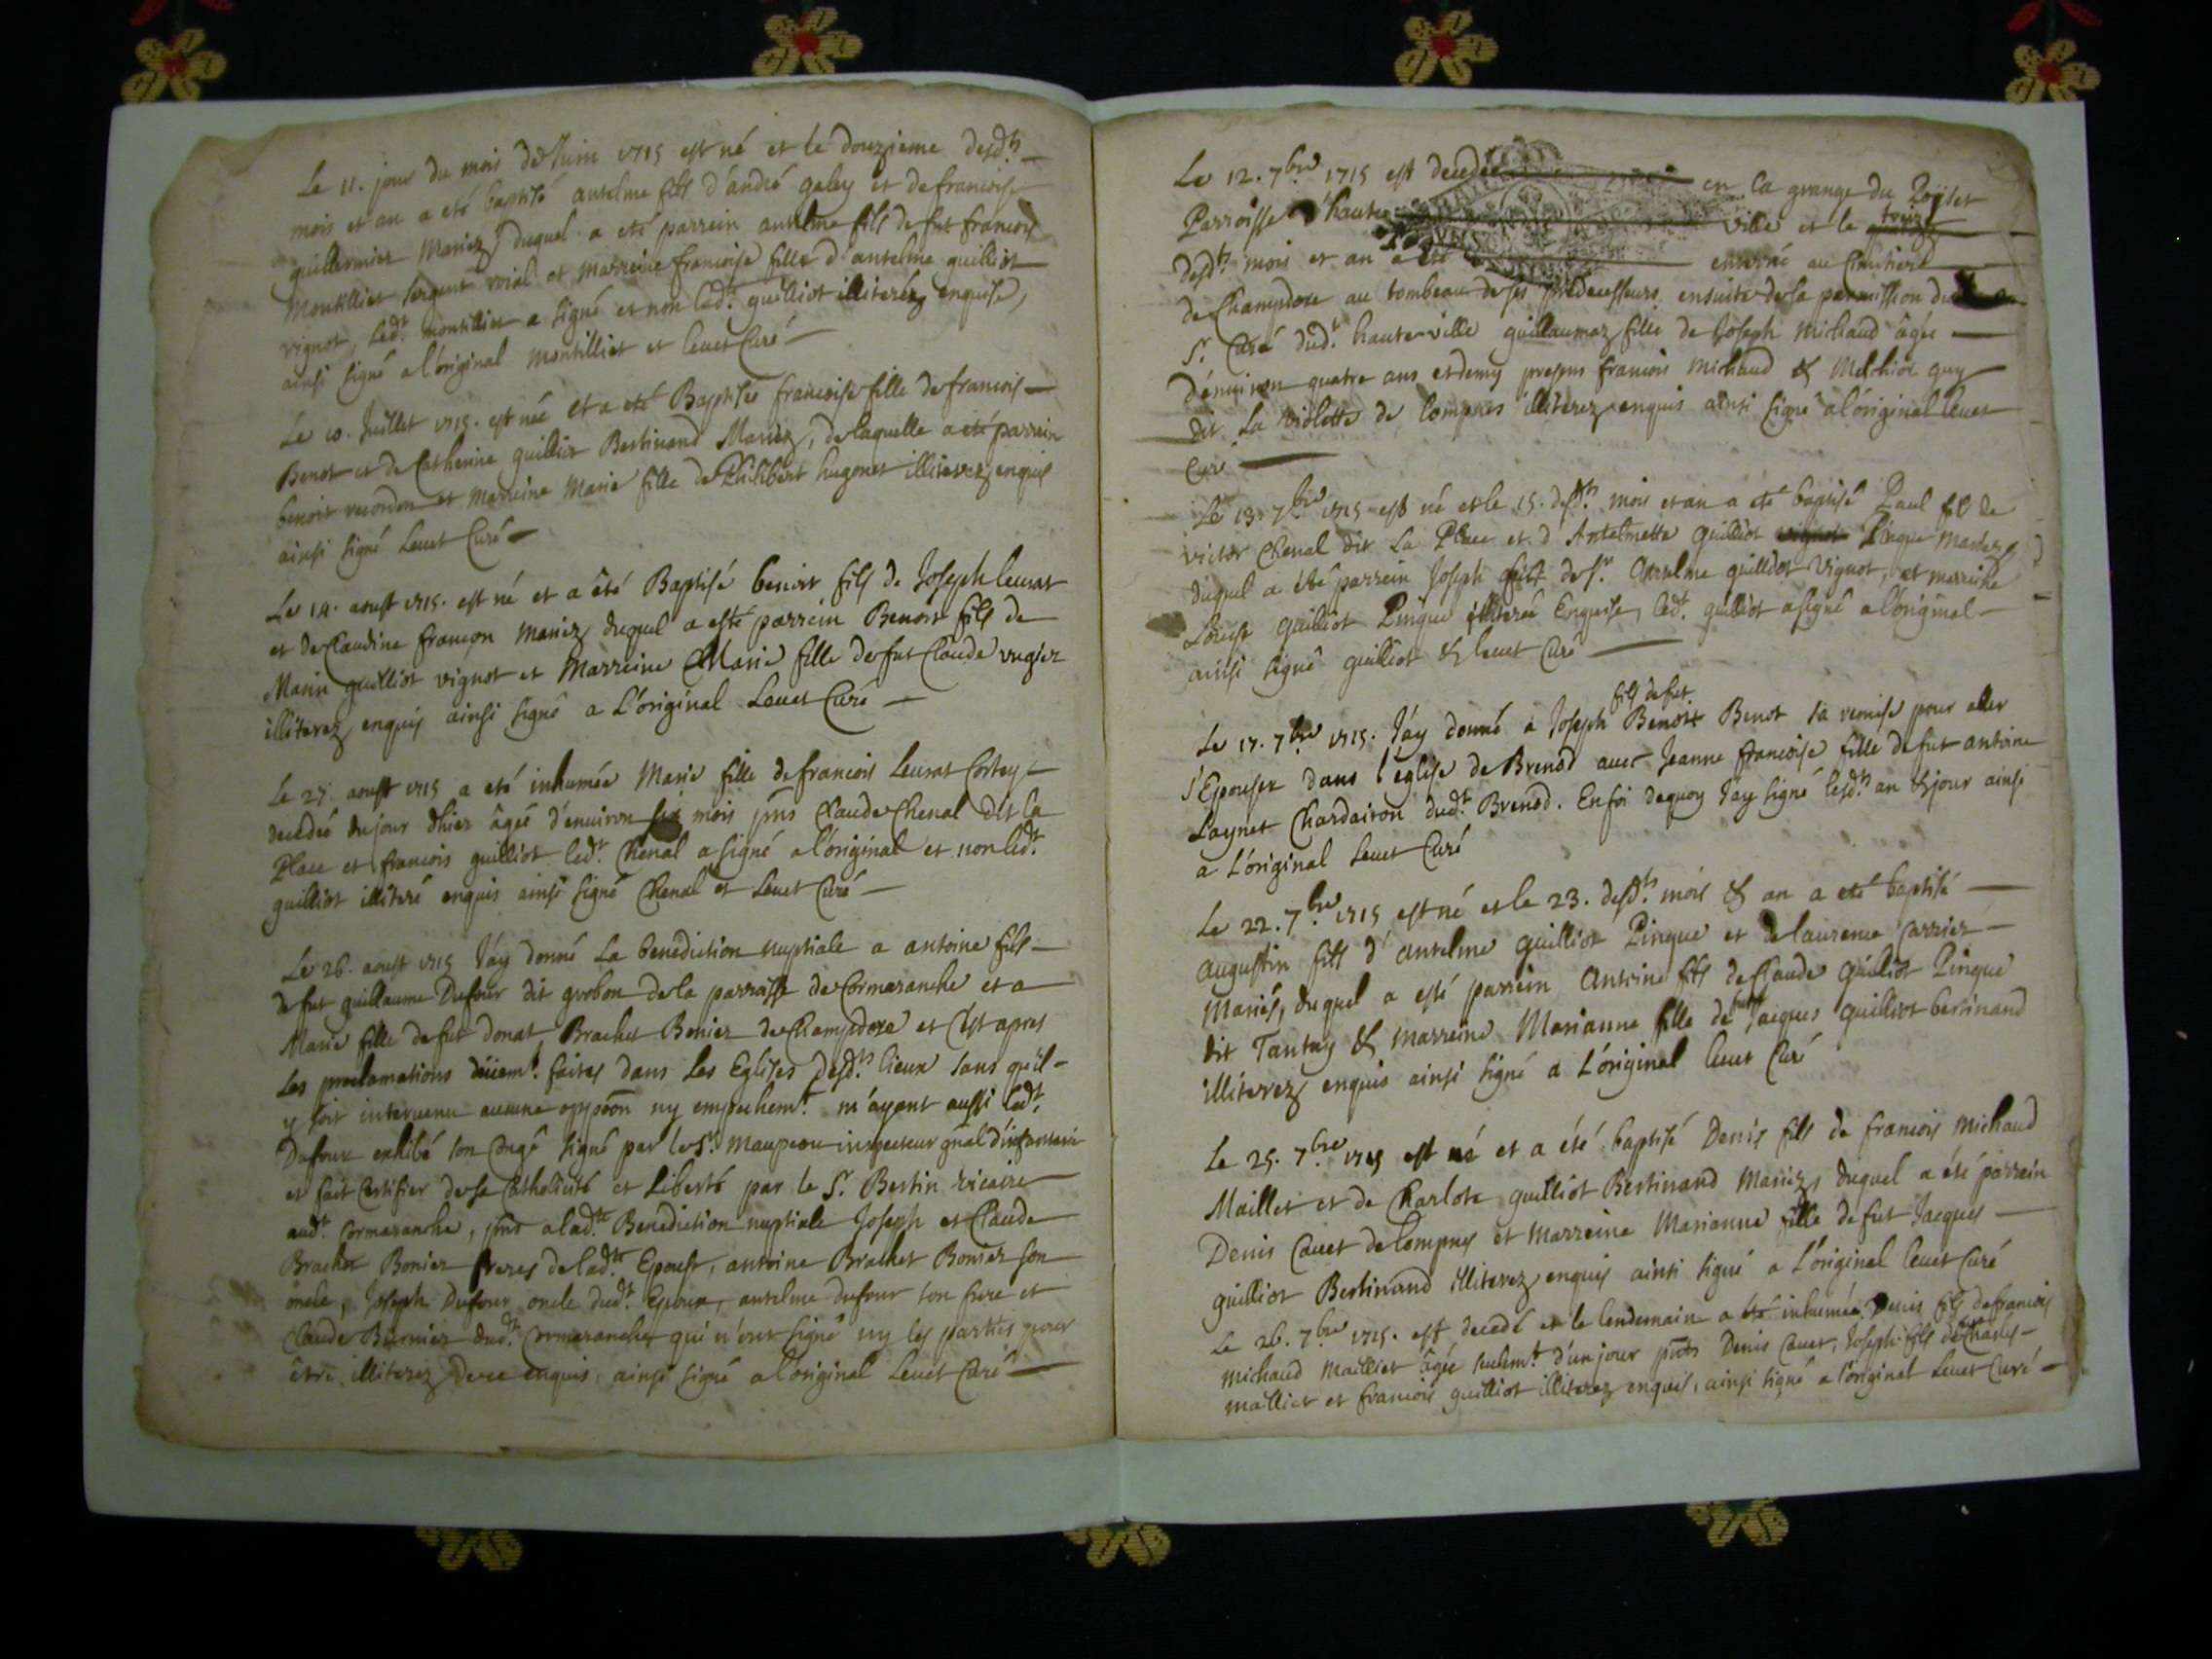 Le 11. jour du mois de Juin 1715 est né et le douzieme desd.ts
mois et an a eté baptisé antelme fils d'andré galey et de francoise
guillermier Mariez, duquel a eté parrein antelme fils de fut francois
Montilliet sergent roial et Marreine francoise fille d'antelme guilliot
vignot, led.t montilliet a signé et non lad.te guilliot illiterez enquise,
ainsi signé a l'original Montilliet et levet Curé
Le 10. Juillet 1715. est née et a eté Baptisée francoise fille de francois
Benot et de Catherine guilliot Bertinand Mariez, de laquelle a eté parrein
benoit recordon et Marreine Marie fille de Philibert hugonet illiterez enquis
ainsi signé Levet Curé
Le 14. aoust 1715. est né et a êté Baptisé benoit fils de Joseph leurat
et de Claudine francon Mariez duquel a esté parrein Benoit fils de
Marin guilliot vignot et Marreine Marie fille de fut Claude
illiterez enquis ainsi signé a L'original Levet Curé
Le 27. aoust 1715 a eté inhumée Marie fille de francois Leurat Cortey
decedée du jour d'hier âgée d'environ six mois pnts Claude Chenal dit la
Place et francois guilliot led.t Chenal a signé a l'original et non led.t
guilliot illiteré enquis ainsi signé Chenal et Levet Curé
Le 26. aoust 1715 J'ay donné La benediction nuptiale a antoine fils
de fut guillaume Dufour dit grobon de la parroisse de Cormaranche et a
Marie fille de fut donat Brachet Bonier de Champdore et c'est apres
Les proclamations düem.t faites dans Les Eglises desd.ts lieux sans qu'il
y soit intervenu aucune oppoõn ny empechem.t m'ayant aussi led.t
Dufour exhibé son Congé signé par le S.r Maupeou inspecteur gñal d'infanterie
et fait Certifier de sa Catholicité et Liberté par le S.r Bertin vicaire
aud.t Cormaranche, pnts a lad.te Benediction nuptiale Joseph et Claude
Brachet Bonier freres de lad.te Epouse, antoine Brachet Bonier son
oncle, Joseph Dufour oncle dud.t Epoux, antelme dufour son frere et
Claude Burnier dud.t Cormaranche qui n'ont signé ny les parties pour
être illiterez de ce enquis, ainsi signé a l'original Levet Curé
Le 12. 7.bre 1715 est decedée en la grange du
Perroisse d'haute ville et le treize
desd.ts mois et an a eté enterré au Cimitiere
de Champdore au tombeau de ses predecesseurs ensuite de la permission du
S.r Curé dud.t hauteville guillaumaz fille de Joseph Michaud âgée
d'environ quatre ans et demy presens francois Michaud & Melchior guy
dit La violette de Lompnes illiterez enquis ainsi signé a l'original levet
Curé
Le 13. 7.bre 1715 est né et le 15. desd.ts mois et an a eté baptisé Paul fils de
victor Chenal dit La Place et d'Antelmette Guilliot vignot Pingue Mariez,
duquel a êté parrein Joseph fils de S.r Antelme guilliot Vignot, et marreine
Guilliot Pingue illiterée Enquise, led.t guilliot a signé a l'original
ainsi signé guilliot & levet Curé
Le 17. 7.bre 1715. J'ay donné à Joseph fils de fut Benoit Benot sa remise pour aller
s'Epouser dans l'église de Brenod avec Jeanne francoise fille de fut antoine
Laynet Chardairon dud.t Brenod. En foi de quoy J'ay signé lesd.ts an & jour ainsi
a L'original Levet Curé
Le 22. 7.bre 1715 est né et le 23. desd.ts mois & an a eté baptisé
Augustin fils d'Antelme Guilliot Pingue et de laurence Carrier
Mariés, duquel a esté parrein Antoine fils de Claude Guilliot Pingue
dit Tantay & Marreine Marianne fille de fut Jacques Guilliot bertinand
illiterez enquis ainsi signé a L'original levet Curé
Le 25. 7.bre 1715 est né et a été baptisé Denis fils de francois Michaud
Maillet et de Charlote guilliot Bertinand Mariez duquel a été parrein
Denis Cavet de Lompnes et Marreine Marianne fille de fut Jacques
guilliot Bertinand illiterez enquis ainsi signé a L'original levet Curé
Le 26. 7.bre 1715. est decedé et le lendemain a eté inhumée Denis fils de francois
Michaud Mailliet âgée seulem.t d'un jour pnts Denis Cavet, Joseph fils de Charles
Mailliet et francois guilliot illiterez enquis, ainsi signé a l'original Levet Curé